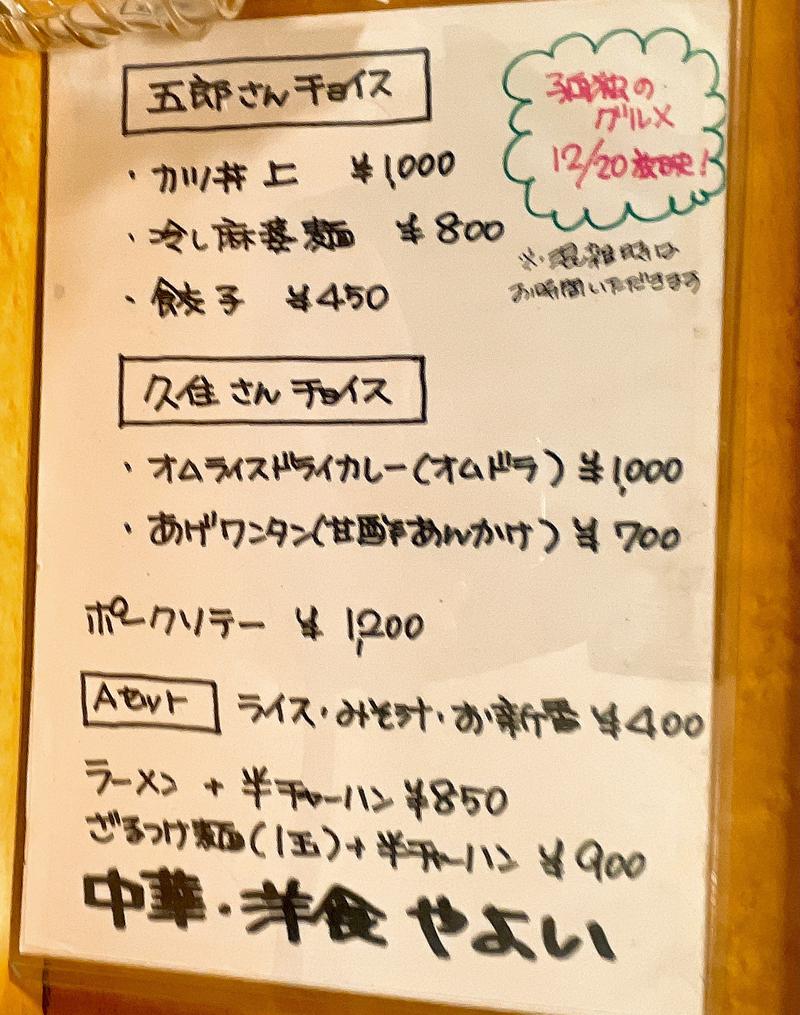 五郎さんチョイス
孤独の
グルメ
12/20放映!
・カツ丼 上 ¥1,000
・冷し麻婆麺 ¥800
・餃子 ¥450
※混雑時は
お時間いただきます
久住さんチョイス
・オムライスドライカレー(オムドラ) ¥1,000
・あげワンタン(甘酢あんかけ) ¥700
ポークソテー ¥1,200
Aセット ライス・みそ汁・お新香 ¥400
ラーメン + 半チャーハン ¥850
ざるつけ麺(1玉)+半チャーハン ¥900
中華・洋食 やよい